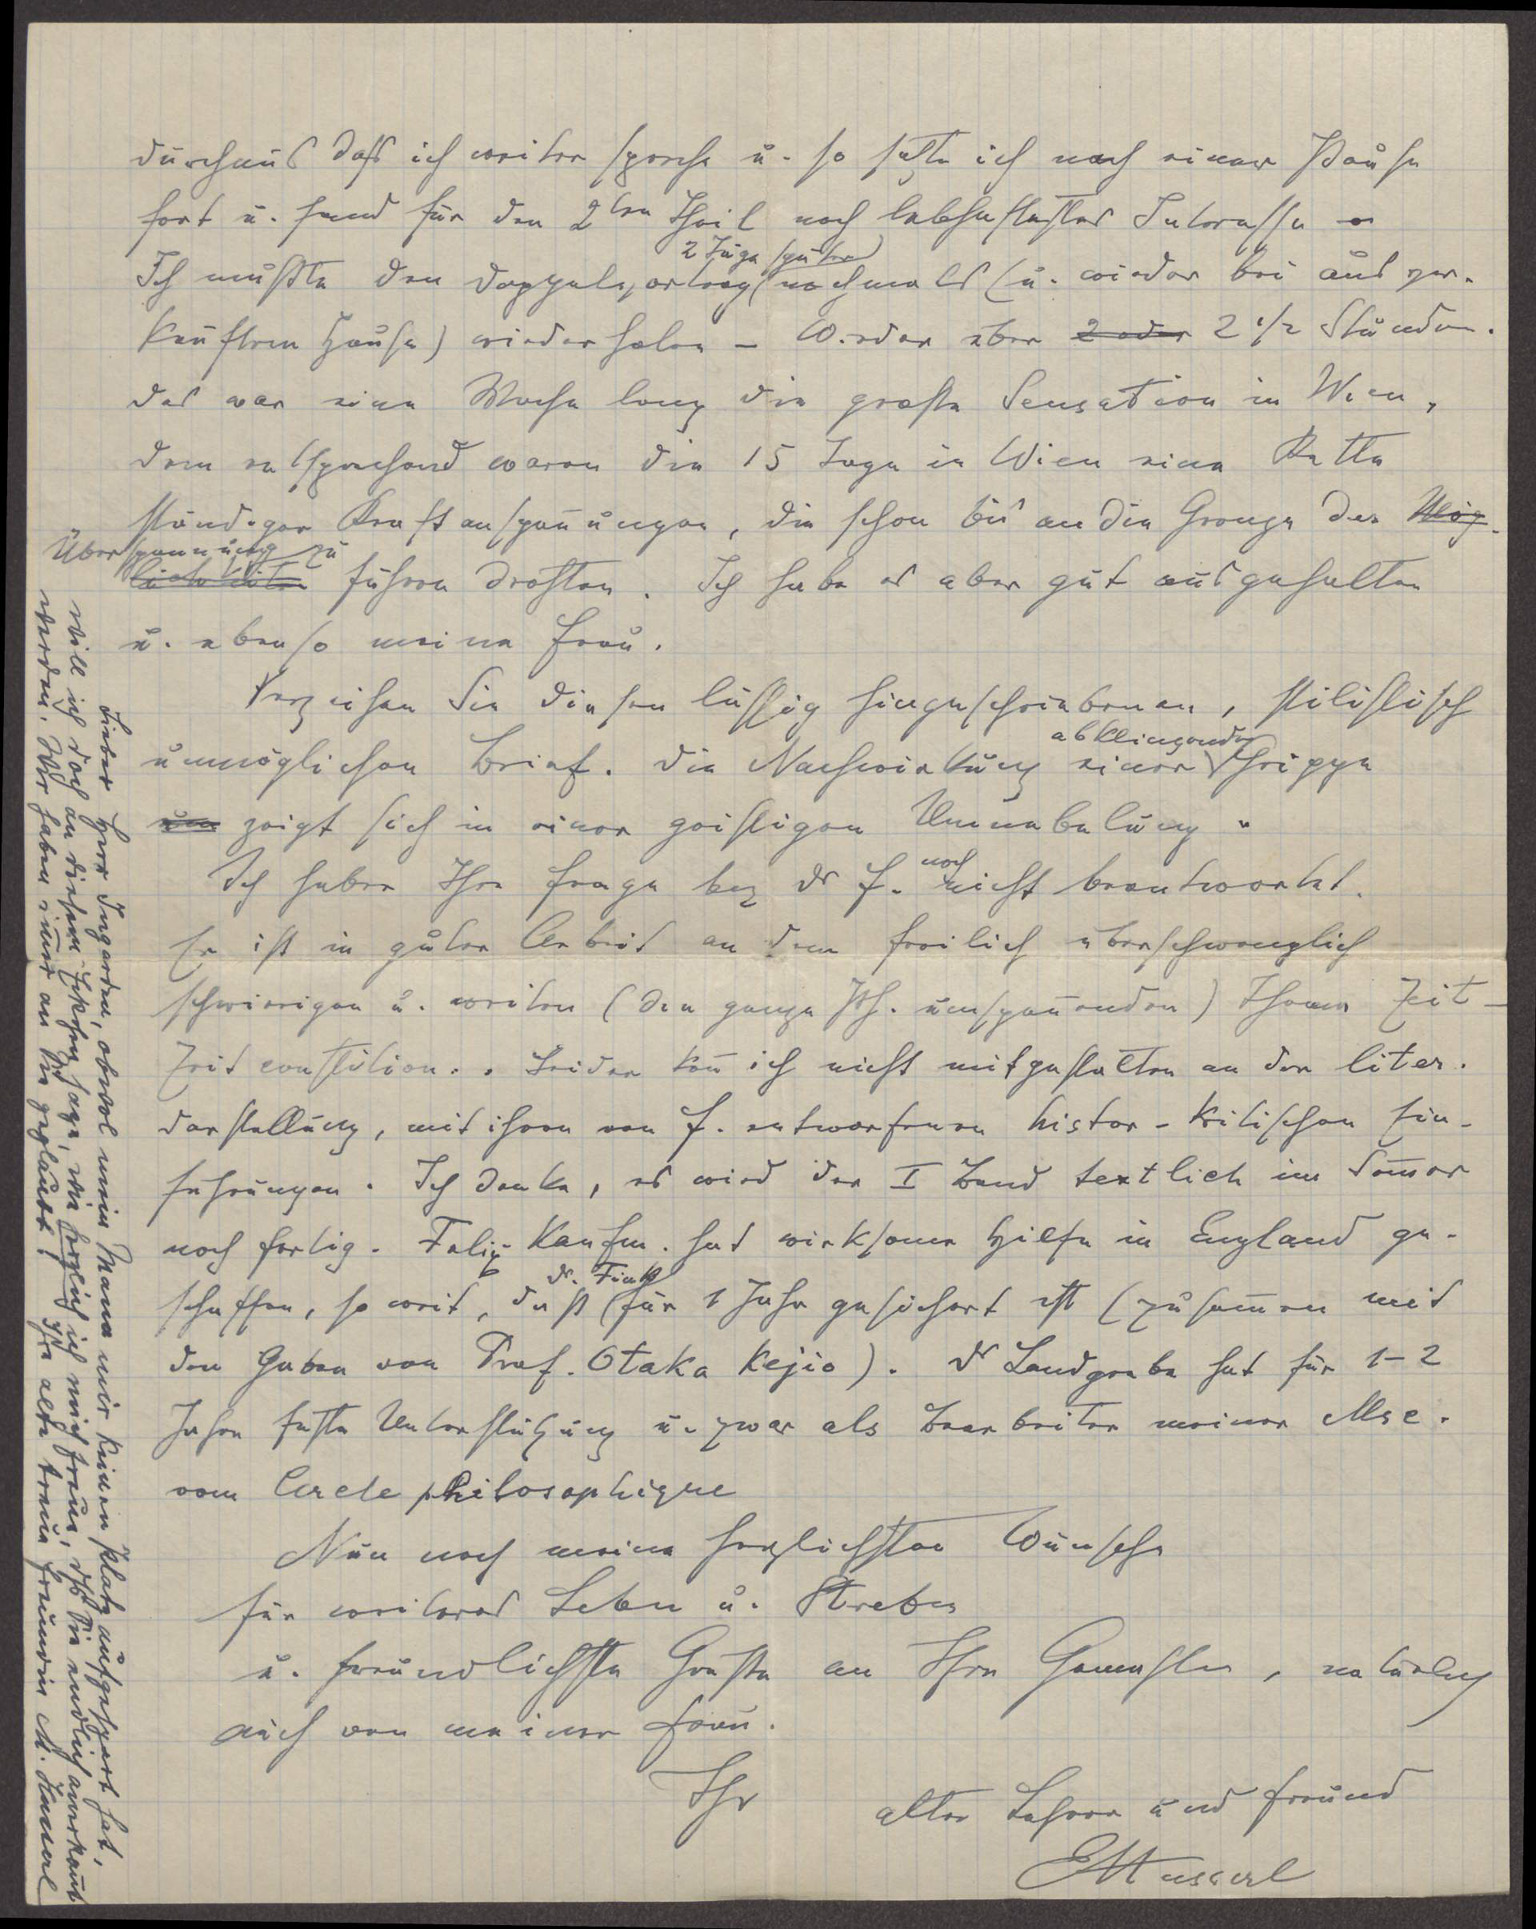 durchaus daß ich weiter spreche u. so setzte ich nach einer Pause
fort u. fand für den 2ten Theil noch lebhaftestes Interesse –
Ich mußte den Doppelvortrag 2 Tage später nochmals (u. wieder bei ausver-
kauftem Hause) wiederholen – Wieder aber 2 oder 2 1/2 Stunden.
Das war eine Woche lang die größte Sensation in Wien,
dem entsprechend waren die 15 Tage in Wien eine Kette
ständiger Kraftanspannungen, die schon bis an die Grenze der Mög-
lichkeiten Überspannung zu führen drohten. Ich habe es aber gut ausgehalten
u. ebenso meine Frau.
Verzeihen Sie diesen lässig hingeschriebenen, stilistisch
unmöglichen Brief. Die Nachwirkung einer abklingenden Grippe
zeigt sich in einer geistigen Umnebelung.
Ich habe Ihre Frage bez Dr F. noch nicht beantwortet.
Er ist in guter Arbeit an dem freilich überschwenglich
schwierigen u. weiten (den ganze Ph. umspannenden) Thema Zeit –
Zeitconstitution. Leider kann ich nicht mitgestalten an der liter.
Darstellung, mit ihren von F. entworfenen histor-kritischen Ein-
führungen. Ich denke, es wird der I Band textlich im Sommer
noch fertig. Felix Kaufm. hat wirksame Hilfe in England ge-
schaffen, so weit, daß Dr. Fink für 1 Jahr gesichert ist (zusammen mit
den Gaben von Prof. Otaka Kejio). Dr Landgrebe hat für 1–2
Jahre feste Unterstützung u. zwar als Bearbeiter meiner Msc.
vom Cercle philosophique
Nun noch meine herzlichsten Wünsche
für weiteres Leben u. Streben
u. freundlichste Grüße an Ihre Gemahlin, natürlich
auch von meiner Frau.
Ihr
alter Lehrer und Freund
EHusserl
Lieber Herr Ingarden, obwol mein Mann mir keinen Platz aufgespart hat,
will ich doch an diesem Eckchen sagen, wie herzlich ich mich freue, dß Sie endlich anerkannt
werden. Wir haben immer an Sie geglaubt! Ihre alte treue Freundin M. Husserl